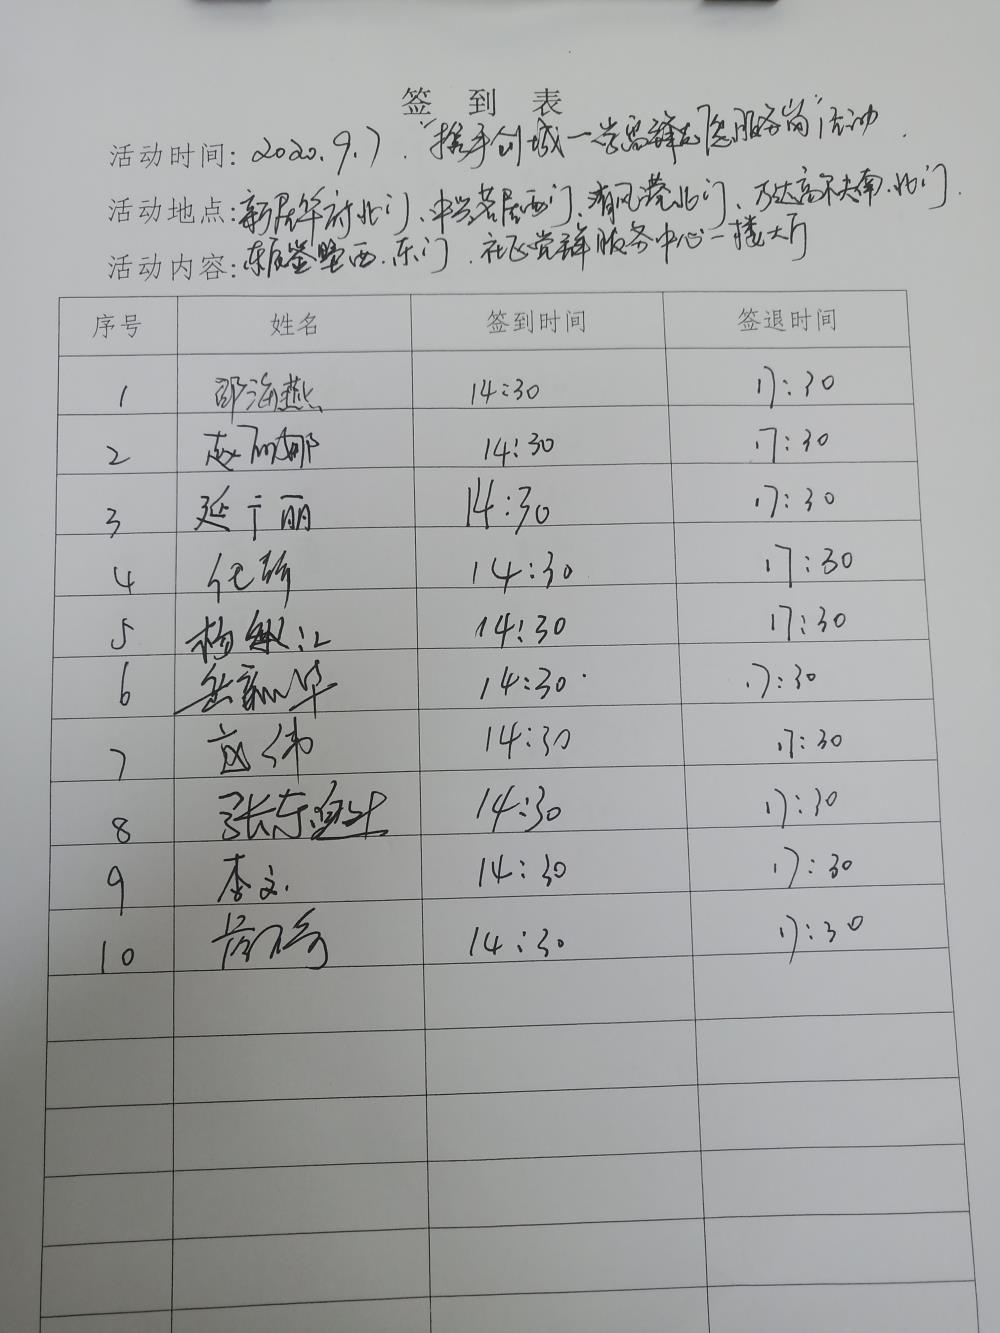 签 到 表
活动时间: 2020.9.7. "携手创城—学雷锋志愿服务岗"活动.
活动地点: 新居华府北门、中学茗居西门、清风港北门、万达高尔夫南.北门.
活动内容: 东辰鉴墅西.东门.社区党群服务中心一楼大厅
序号 姓名 签到时间 签退时间
1 邵海燕 14:30 17:30
2 赵丽娜 14:30 17:30
3 延丽 14:30 17:30
4 代 14:30 17:30
5 杨 14:30 17:30
6 岳新华 14:30 17:30
7 伟 14:30 17:30
8 张东 14:30 17:30
9 李文 14:30 17:30
10 14:30 17:30